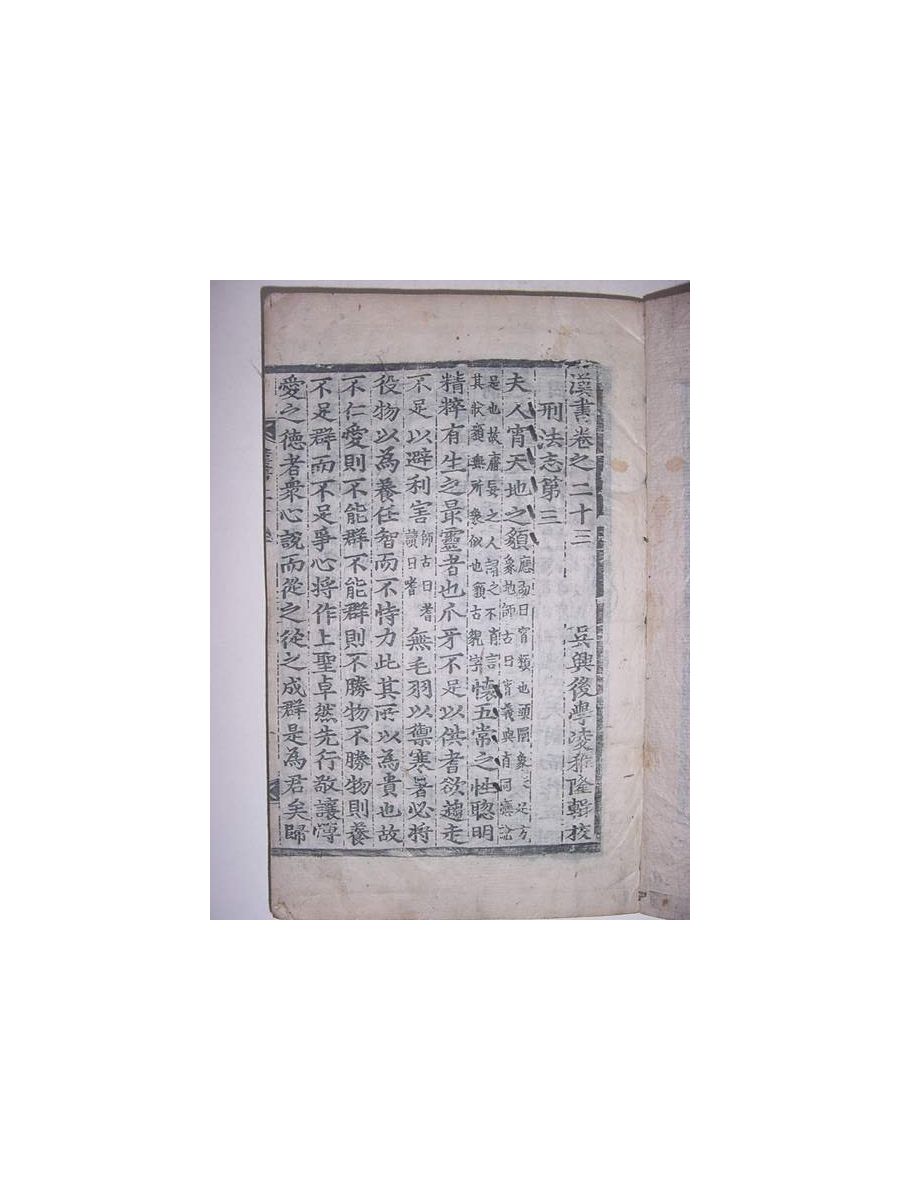 漢書卷之二十三 吳興後學凌稚隆輯校
刑法志第三
夫人宵天地之䫉應劭曰宵類也頭圜象天足方象地師古曰宵義與肖同應說是也故庸妄之人謂之不肖言其狀䫉無所象似也䫉古貌字懷五常之性聰明
精粹有生之最靈者也爪牙不足以供耆欲趨走
不足以避利害師古曰耆讀曰嗜無毛羽以禦寒暑必將
役物以為養任智而不恃力此其所以為貴也故
不仁愛則不能群不能群則不勝物不勝物則養
不足群而不足爭心將作上聖卓然先行敬讓愽
愛之德者衆心說而從之從之成群是為君矣歸